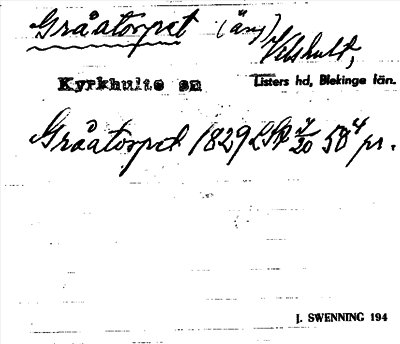 Gråatorpet (äng) Vilshult,
Kyrkhults sn Listers hd, Blekinge län.
Gråatorpet 1829 LSA 7/20 58⁴ pr.
J. SWENNING 194